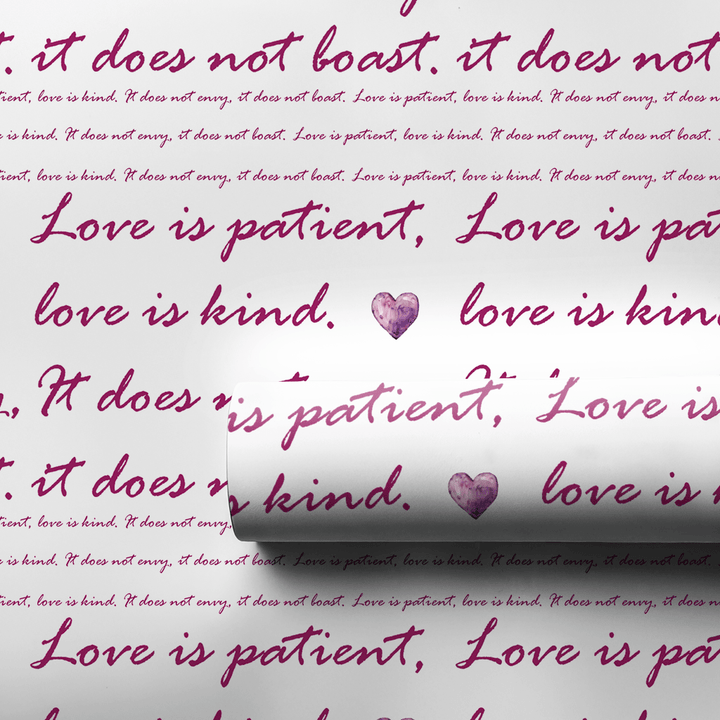 t. it does not boast. it does not
tient, love is kind. It does not envy, it does not boast. Love is patient, love is kind. It does not envy, it does n
e is kind. It does not envy, it does not boast. Love is patient, love is kind. It does not envy, it does not boast.
tient, love is kind. It does not envy, it does not boast. Love is patient, love is kind. It does not envy, it does n
Love is patient, Love is pa
love is kind. love is kin
, It does
is patient, Love is
t. it does
kind. love is
tient, love is kind. It does not envy,
e is kind. It does not envy, it does not boast. Love is patient, love is kind. It does not envy, it does not boast.
tient, love is kind. It does not envy, it does not boast. Love is patient, love is kind. It does not envy, it does n
Love is patient, Love is pa